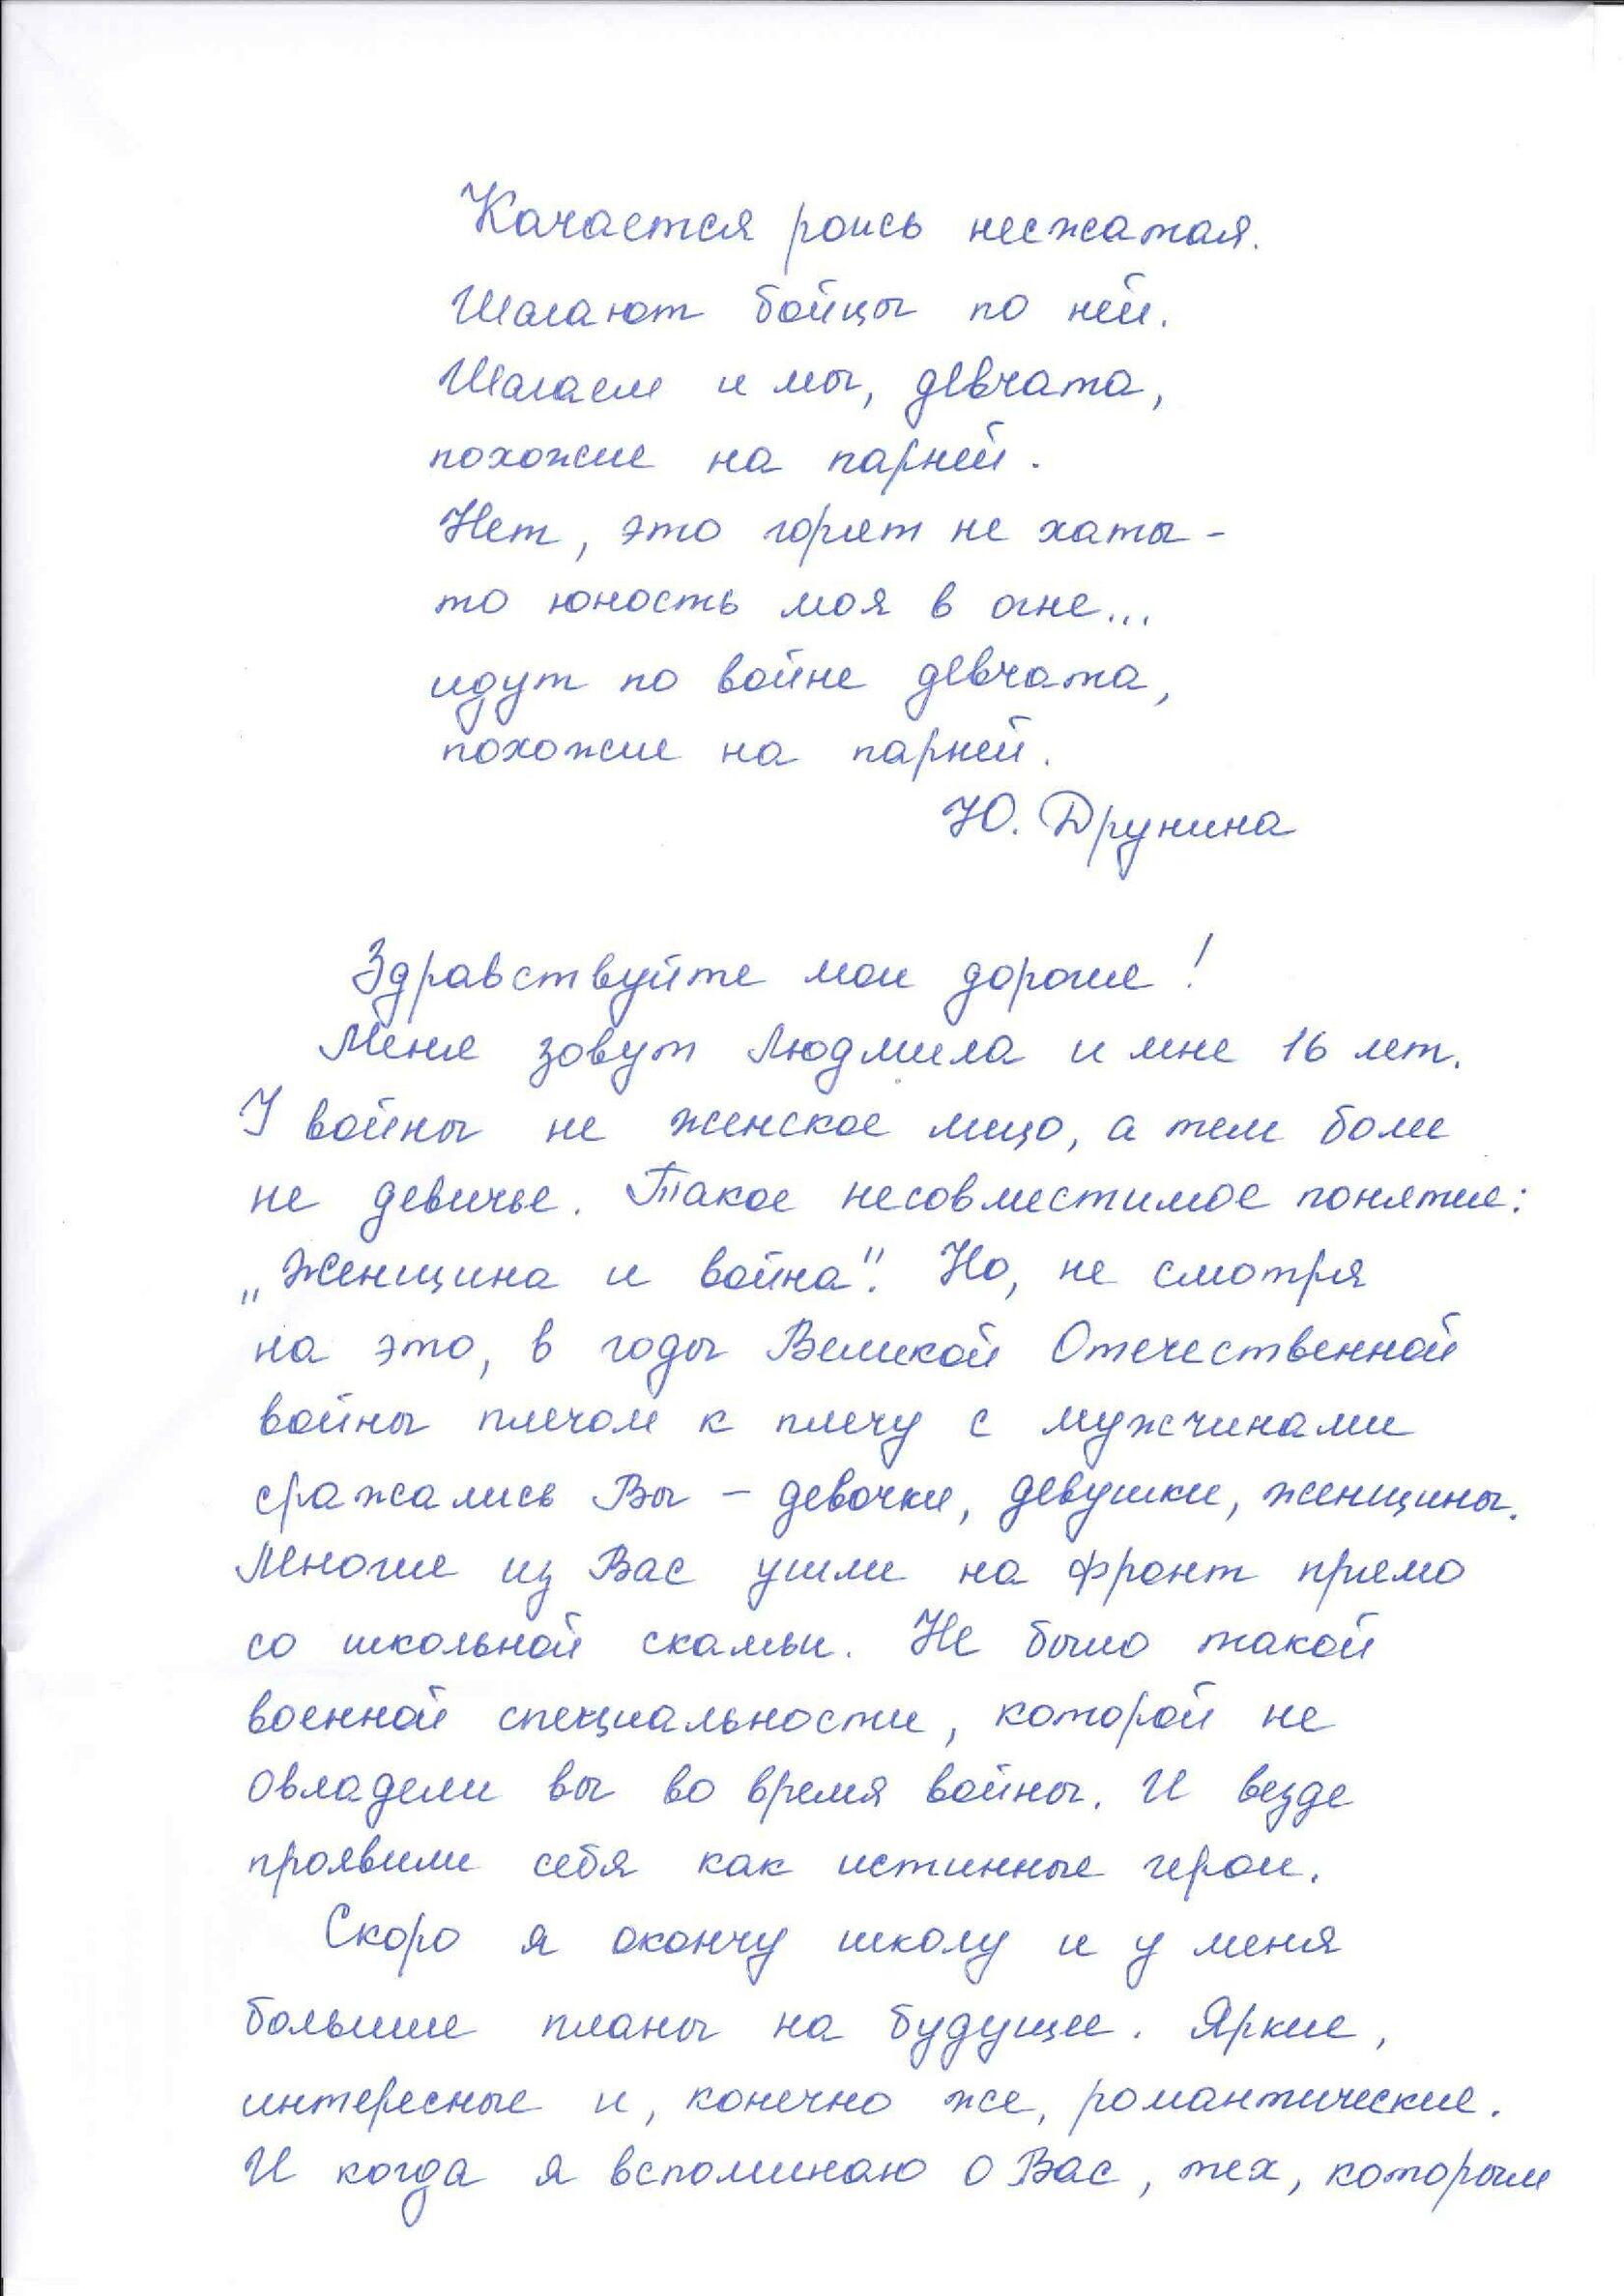 Качается рожь несжатая.
Шагают бойцы по ней.
Шагаем и мы, девчата,
похожие на парней.
Нет, это горят не хаты -
то юность моя в огне...
идут по войне девчата,
похожие на парней.
Ю. Друнина
Здравствуйте мои дорогие!
Меня зовут Людмила и мне 16 лет.
У войны не женское лицо, а тем более
не девичье. Такое несовместимое понятие:
„Женщина и война". Но, не смотря
на это, в годы Великой Отечественной
войны плечом к плечу с мужчинами
сражались Вы - девочки, девушки, женщины.
Многие из Вас ушли на фронт прямо
со школьной скамьи. Не было такой
военной специальности, которой не
овладели вы во время войны. И везде
проявили себя как истинные герои.
Скоро я окончу школу и у меня
большие планы на будущее. Яркие,
интересные и, конечно же, романтические.
И когда я вспоминаю о Вас, тех, которым